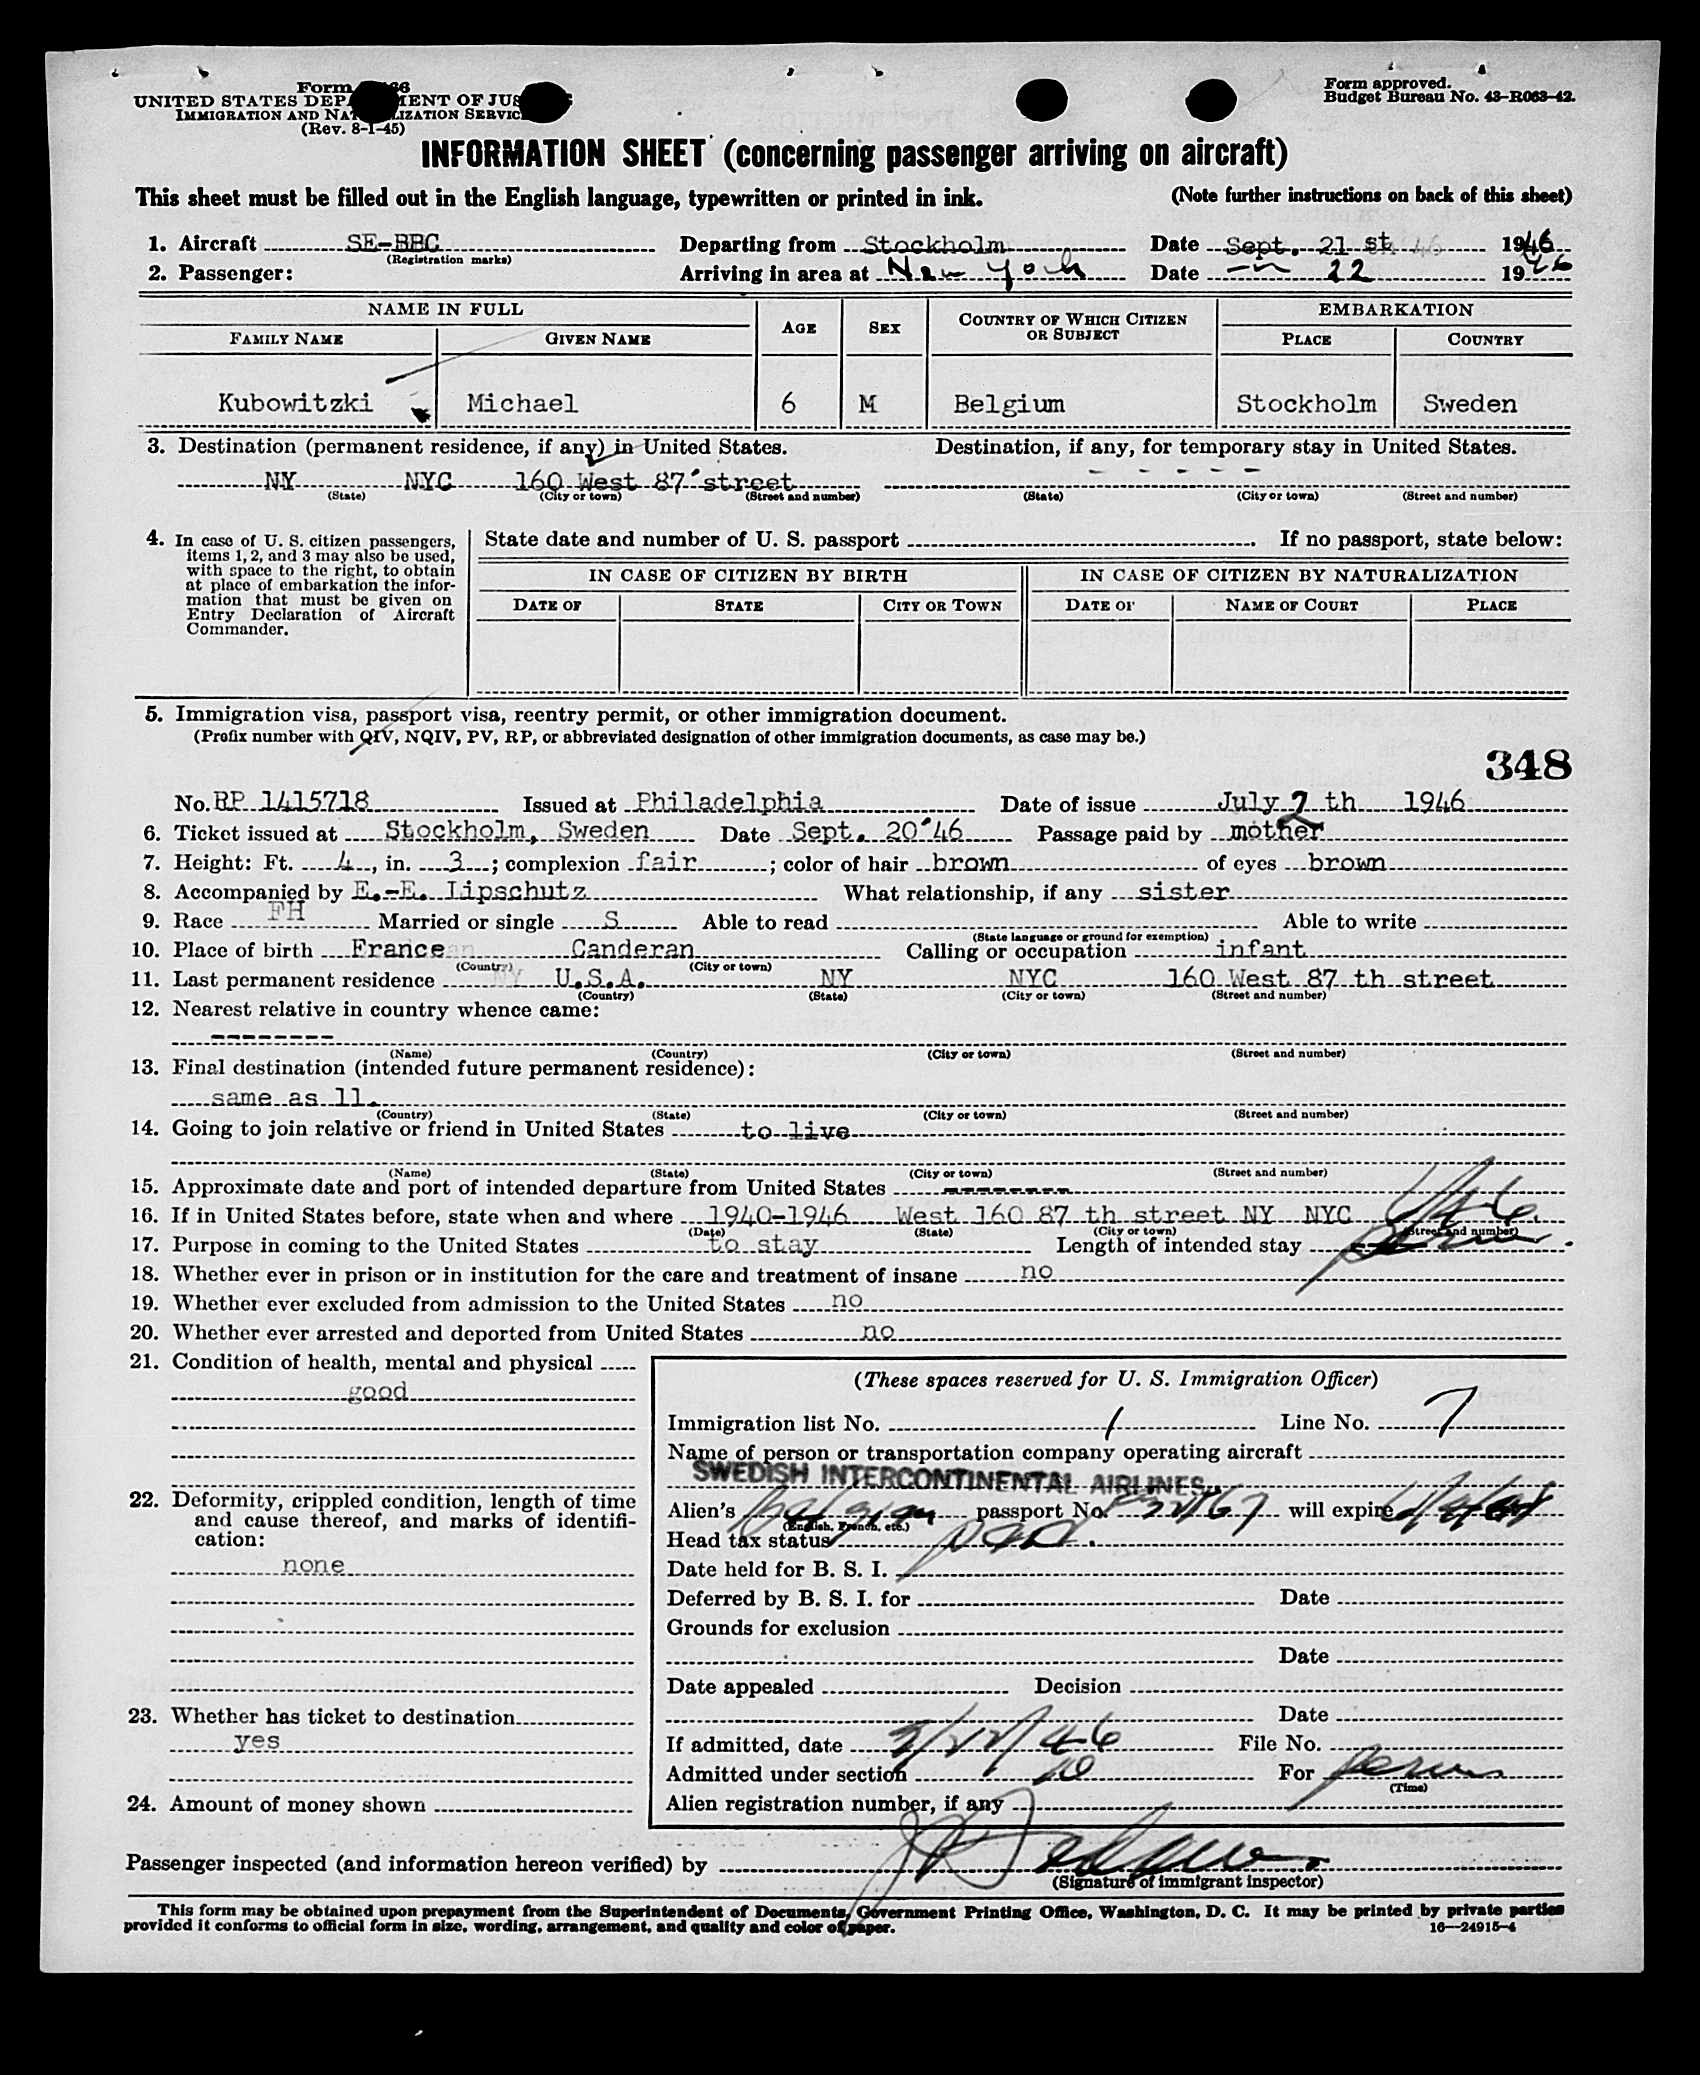 Form
UNITED STATES DEPARTMENT OF JUSTICE
IMMIGRATION AND NATURALIZATION SERVICE
(Rev. 8-1-45)
Form approved.
Budget Bureau No. 43-R063-42.
INFORMATION SHEET (concerning passenger arriving on aircraft)
This sheet must be filled out in the English language, typewritten or printed in ink. (Note further instructions on back of this sheet)
1. Aircraft SE-BBC Departing from Stockholm Date Sept. 21 st 1946
(Registration marks)
2. Passenger: Arriving in area at New York Date -"- 22 1946
NAME IN FULL AGE SEX COUNTRY OF WHICH CITIZEN OR SUBJECT EMBARKATION
FAMILY NAME GIVEN NAME PLACE COUNTRY
Kubowitzki Michael 6 M Belgium Stockholm Sweden
3. Destination (permanent residence, if any) in United States. Destination, if any, for temporary stay in United States.
NY NYC 160 West 87 street - - - - -
(State) (City or town) (Street and number) (State) (City or town) (Street and number)
4. In case of U. S. citizen passengers, items 1, 2, and 3 may also be used, with space to the right, to obtain at place of embarkation the information that must be given on Entry Declaration of Aircraft Commander.
State date and number of U. S. passport . If no passport, state below:
IN CASE OF CITIZEN BY BIRTH IN CASE OF CITIZEN BY NATURALIZATION
DATE OF STATE CITY OR TOWN DATE OF NAME OF COURT PLACE
5. Immigration visa, passport visa, reentry permit, or other immigration document.
(Prefix number with QIV, NQIV, PV, RP, or abbreviated designation of other immigration documents, as case may be.)
348
No. RP 1415718 Issued at Philadelphia Date of issue July 2 th 1946
6. Ticket issued at Stockholm, Sweden Date Sept. 20'46 Passage paid by mother
7. Height: Ft. 4, in. 3; complexion fair; color of hair brown of eyes brown
8. Accompanied by E.-E. Lipschutz What relationship, if any sister
9. Race FH Married or single S Able to read Able to write
(State language or ground for exemption)
10. Place of birth France Canderan Calling or occupation infant
(Country) (City or town)
11. Last permanent residence U.S.A. NY NYC 160 West 87 th street
(Country) (State) (City or town) (Street and number)
12. Nearest relative in country whence came:
--------
(Name) (Country) (City or town) (Street and number)
13. Final destination (intended future permanent residence):
same as 11.
(Country) (State) (City or town) (Street and number)
14. Going to join relative or friend in United States to live
(Name) (State) (City or town) (Street and number)
15. Approximate date and port of intended departure from United States --------
16. If in United States before, state when and where 1940-1946 West 160 87 th street NY NYC
(Date) (State) (City or town) (Street and number)
17. Purpose in coming to the United States to stay Length of intended stay
18. Whether ever in prison or in institution for the care and treatment of insane no
19. Whether ever excluded from admission to the United States no
20. Whether ever arrested and deported from United States no
21. Condition of health, mental and physical
good
22. Deformity, crippled condition, length of time and cause thereof, and marks of identification:
none
23. Whether has ticket to destination
yes
24. Amount of money shown
(These spaces reserved for U. S. Immigration Officer)
Immigration list No. 1 Line No. 7
Name of person or transportation company operating aircraft
SWEDISH INTERCONTINENTAL AIRLINES.
Alien's Belgian passport No. will expire
(English, French, etc.)
Head tax status
Date held for B. S. I.
Deferred by B. S. I. for Date
Grounds for exclusion
Date
Date appealed Decision
Date
If admitted, date 9/22/46 File No.
Admitted under section For
(Time)
Alien registration number, if any
Passenger inspected (and information hereon verified) by
(Signature of immigrant inspector)
This form may be obtained upon prepayment from the Superintendent of Documents, Government Printing Office, Washington, D. C. It may be printed by private parties
provided it conforms to official form in size, wording, arrangement, and quality and color of paper. 16—24915-4